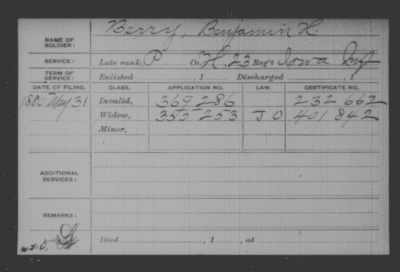 NAME OF SOLDIER: Berry, Benjamin H
SERVICE: Late rank, P Co. H, 23 Reg't Iowa Inf
TERM OF SERVICE: Enlisted , 1 Discharged , 1
DATE OF FILING. CLASS. APPLICATION NO. LAW. CERTIFICATE NO.
1880 May 31 Invalid, 369 286 232 662
Widow, 353 253 J O 401 842
Minor,
ADDITIONAL SERVICES:
REMARKS:
Died , 1 , at